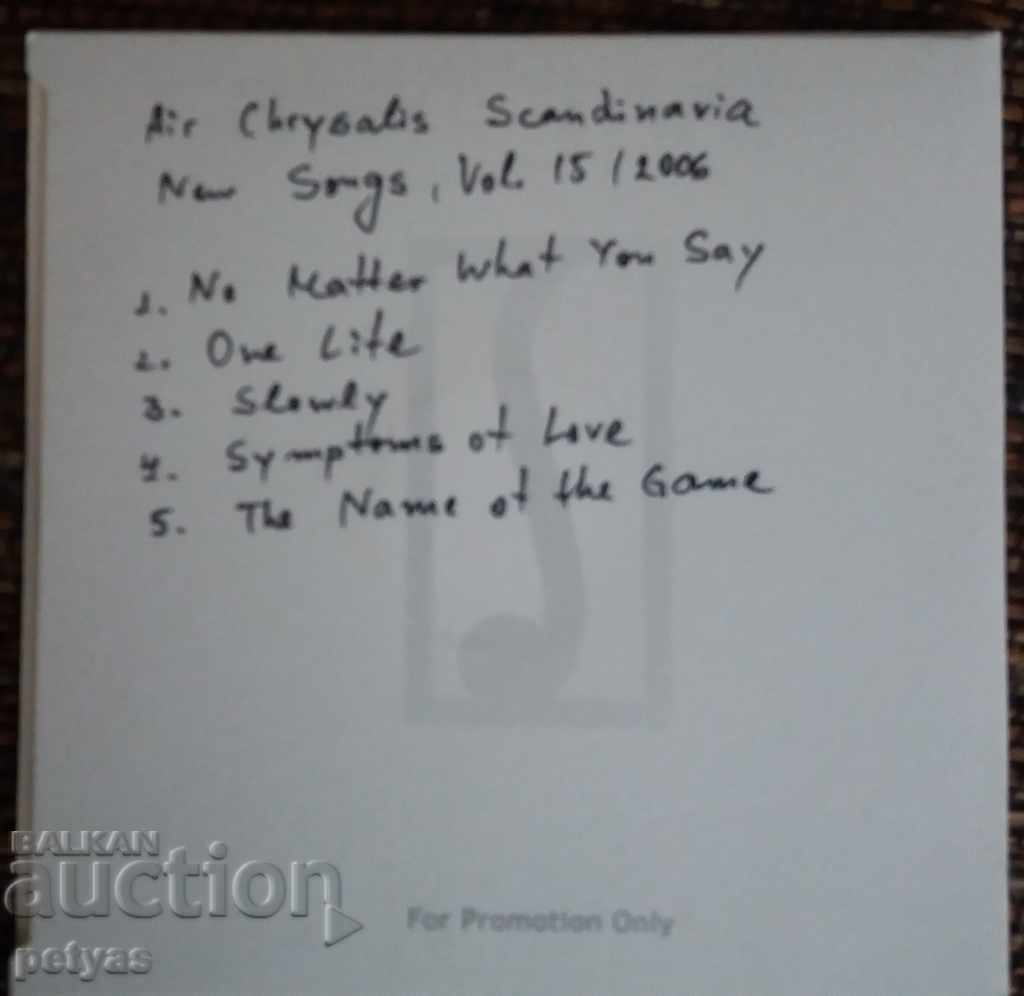 Air Chrysalis Scandinavia
New Songs, Vol. 15 / 2006
1. No Matter What You Say
2. One Life
3. Slowly
4. Symptoms of Love
5. The Name of the Game
For Promotion Only
BALKAN
auction
petyas